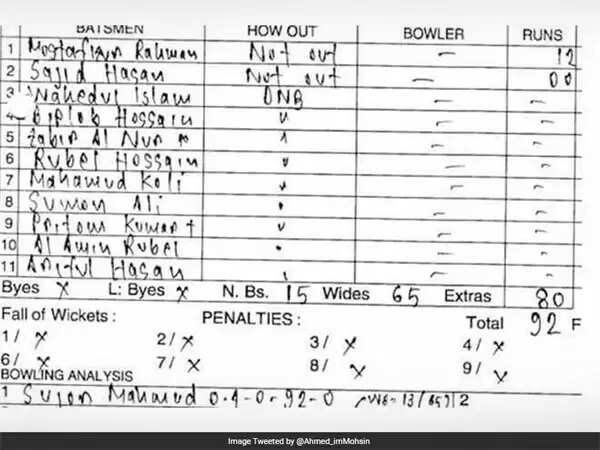 BATSMEN HOW OUT BOWLER RUNS
1 Mostafizur Rahman Not out – 12
2 Sajid Hasan Not out – 00
3 Nahedul Islam DNB – –
4 Biplob Hossain " – –
5 Zabir Al Nur * " – –
6 Rubel Hossain " – –
7 Mahamud Koli " – –
8 Sumon Ali " – –
9 Pritom Kumar + " – –
10 Al Amin Rubel " – –
11 Ariful Hasan " – –
Byes x L: Byes x N. Bs. 15 Wides 65 Extras 80
Fall of Wickets : PENALTIES: Total 92 F
1/ x 2/ x 3/ x 4/ x
6/ x 7/ x 8/ x 9/ x
BOWLING ANALYSIS
1 Sujon Mahamud 0.4-0-92-0
Image Tweeted by @Ahmed_imMohsin